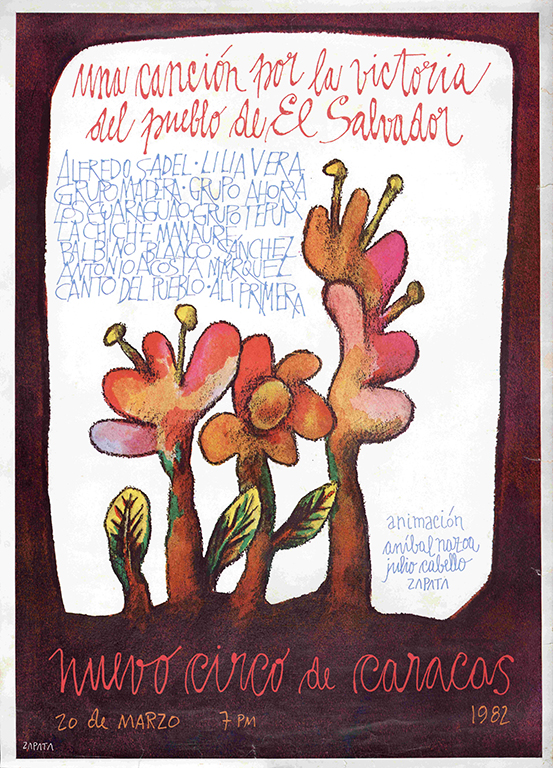 una canción por la victoria
del pueblo de El Salvador
ALFREDO SADEL · LILIA VERA
GRUPO MADERA · GRUPO AHORA
LOS GUARAGUAO · GRUPO TEPUY
LA CHICHE MANAURE
BALBINO BLANCO SANCHEZ
ANTONIO ACOSTA MÁRQUEZ
CANTO DEL PUEBLO · ALI PRIMERA
animación
aníbal nazoa
julio cabello
ZAPATA
nuevo circo de caracas
20 de MARZO 7 PM 1982
ZAPATA